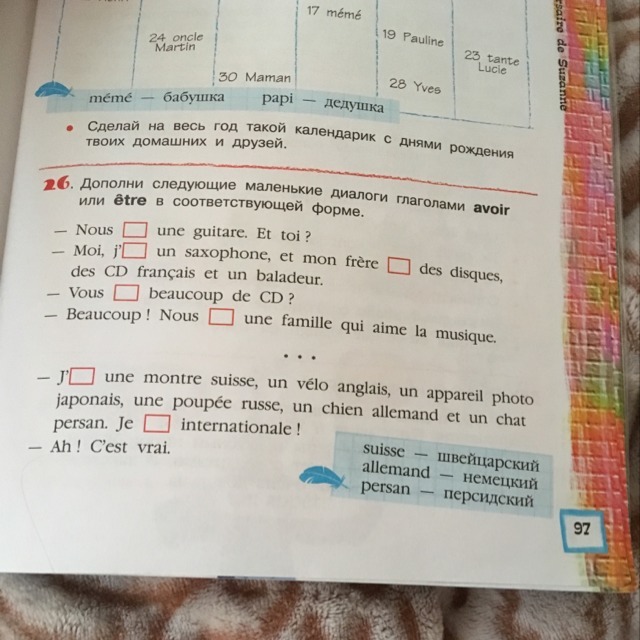 17 mémé
24 oncle
Martin
19 Pauline
23 tante
Lucie
30 Maman
28 Yves
mémé — бабушка papi — дедушка
• Сделай на весь год такой календарик с днями рождения
твоих домашних и друзей.
26. Дополни следующие маленькие диалоги глаголами avoir
или être в соответствующей форме.
— Nous □ une guitare. Et toi ?
— Moi, j'□ un saxophone, et mon frère □ des disques,
des CD français et un baladeur.
— Vous □ beaucoup de CD ?
— Beaucoup ! Nous □ une famille qui aime la musique.
• • •
— J'□ une montre suisse, un vélo anglais, un appareil photo
japonais, une poupée russe, un chien allemand et un chat
persan. Je □ internationale !
— Ah ! C'est vrai.
suisse — швейцарский
allemand — немецкий
persan — персидский
de Suzanne
97